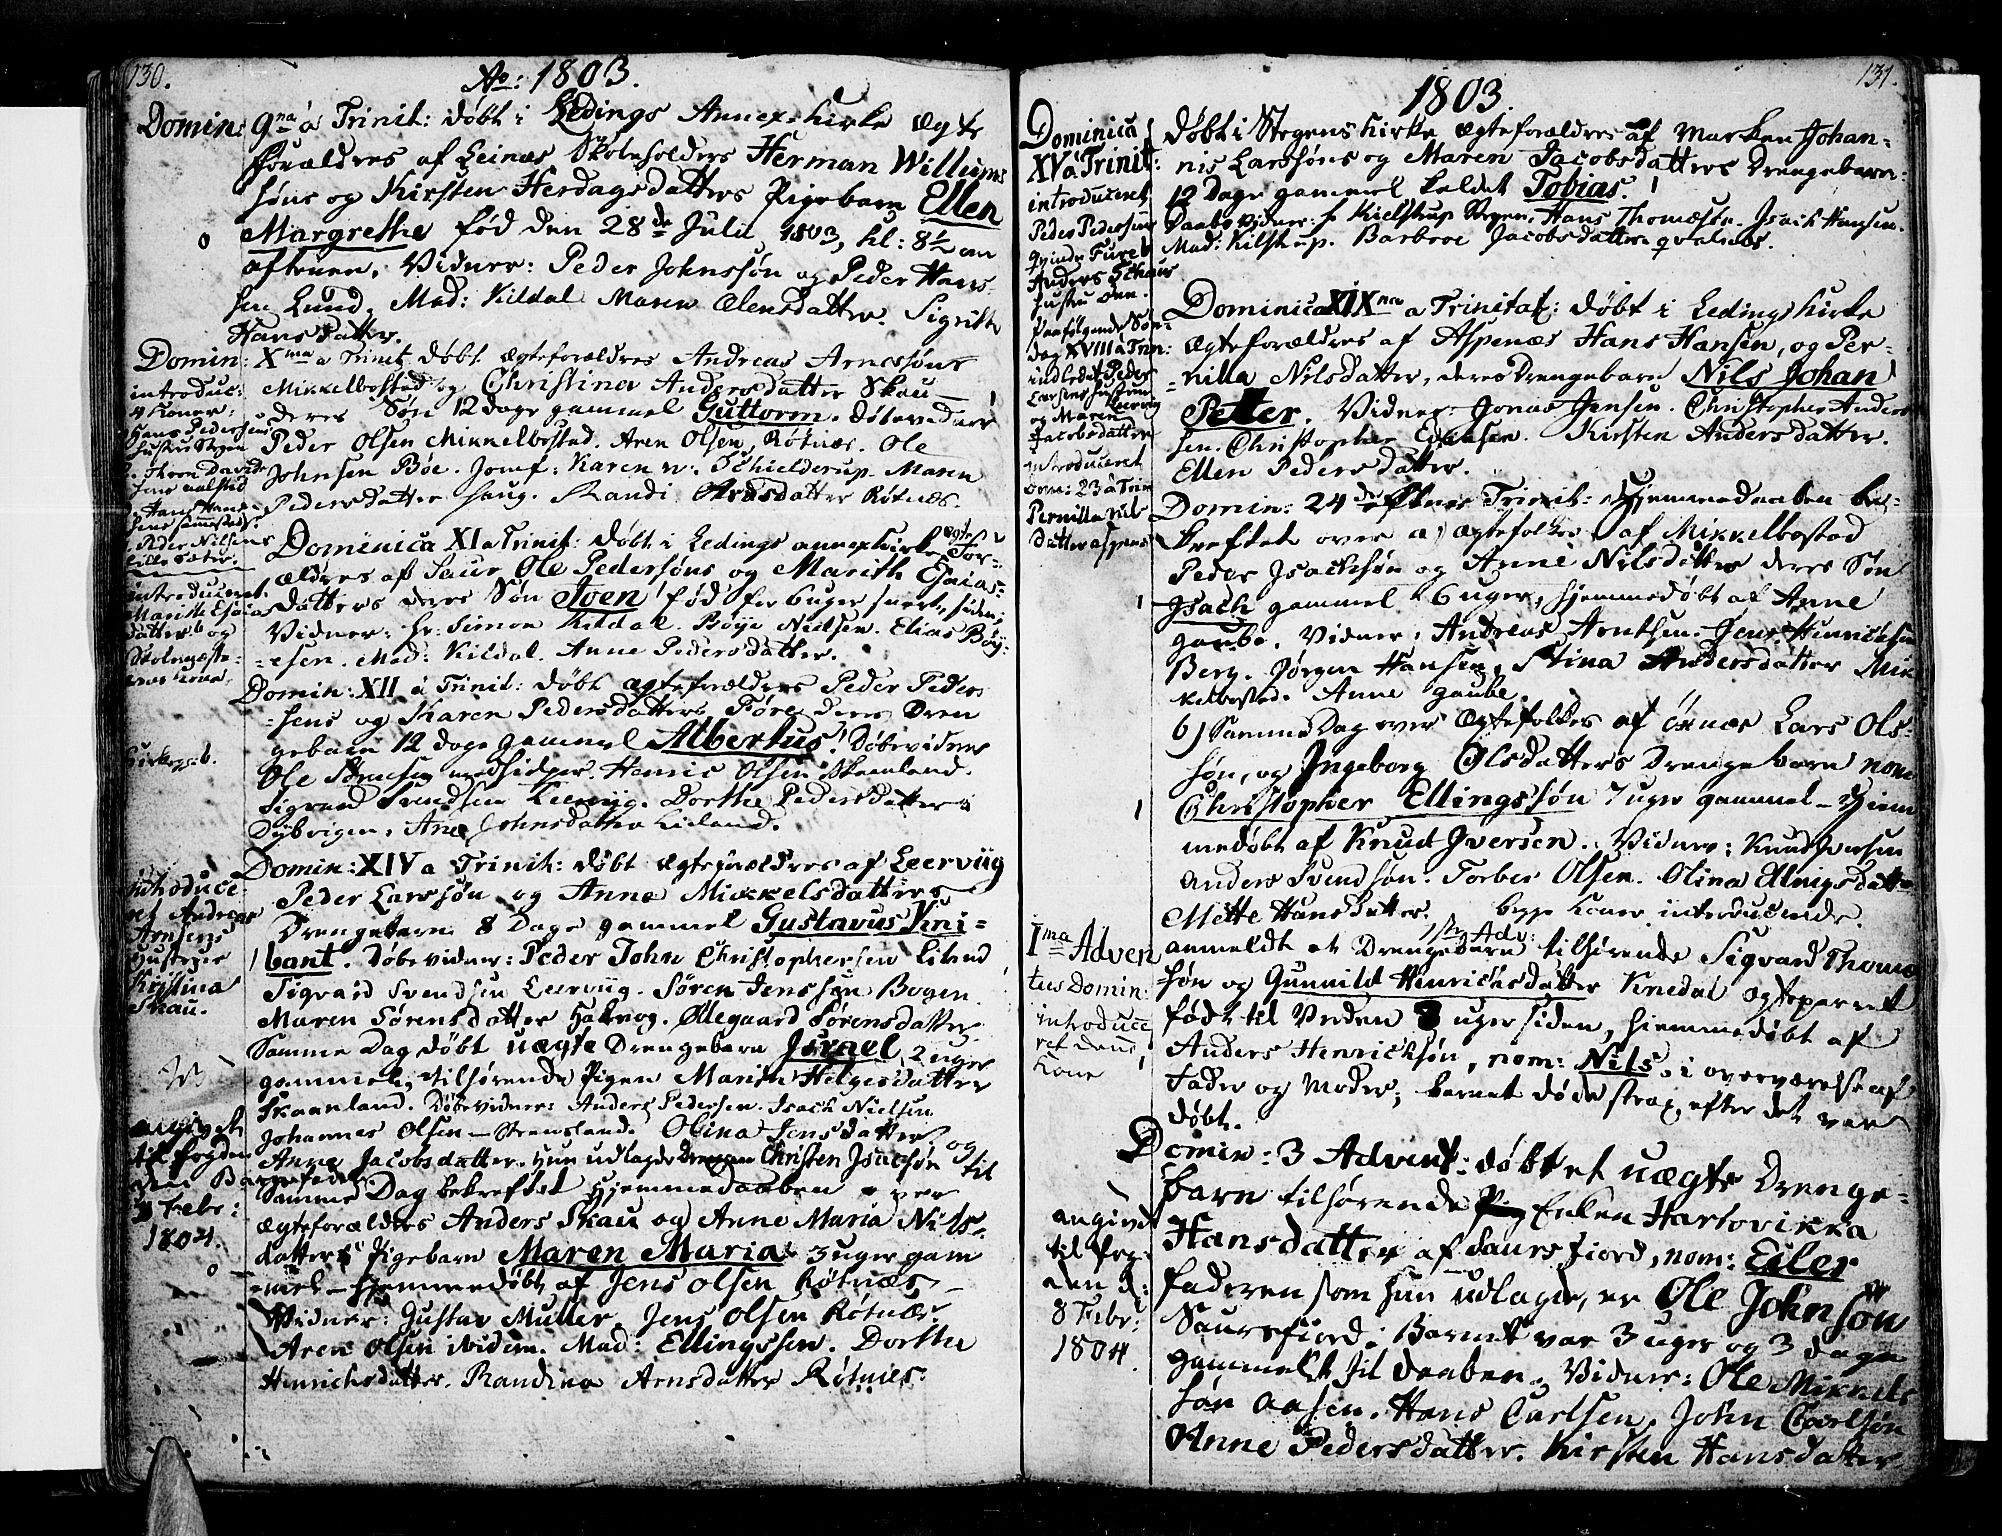 130.
Ao: 1803.
Domin: 9na à Trinit: døbt i Ledings Annex-Kirke Ægte
forældres af Leines Skoleholders Herman Willums
søns og Kirsten Herdagsdatters Pigebarn Ellen
Margrethe fød den 28de Julii 1803, kl: 8½ om
aftenen, Vidner: Peder Johnssøn og Peder Hans-
sen Lund, Mad: Kildal Maren Olensdatter. Sigrith
Hansdatter.
Domin: Xma a Trinit døbt Ægteforældres Andreas Arnessøns
Mikkelbostad og Christina Andersdatter Skau
deres Søn 12 dage gammel Guttorm. døbevidner
Peder Olsen Mikkelbostad. Aren Olsen, Røtnæs. Ole
Johnsen Bøe. Jomf: Karen Schielderup. Maren
Pedersdatter Haug. Randi Arnsdatter Røtnæs.
introduc:
4 Koner:
Hans Pedersens
Hustru
Peder Nilsens
Lille Sæter.
Dominica XI a Trinit: døbt i Ledings annexkirke ægte For-
ældres af Saur Ole Pedersøns og Marith Esaias-
datters deres Søn Iven fød for 6 uger siden,
Vidner: Hr: Simon Kildal. Bøye Nielsen. Elias Bøy-
-esen. Mad: Kildal. Anne Pedersdatter.
introduceret
Marith Esaia
datter og
Domin: XII à Trinit: døbt ægteforældres Peder Peder
sens og Karen Pedersdatters Føre deres Dren
gebarn 12 dage gammel Albertus! Døbevidner
Ole Sørensen medhielper. Henric Olsen Skaanland.
Sigvard Svendsen Leervig. Dorthe Pedersdatter
Dybvigen, Ane Johnsdatter Liland.
Domin: XIV a Trinit: døbt ægteforældres af Leervüg
Peder Larssøn og Anne Mikkelsdatters
Drengebarn 8 Dage gammel Gustavus Kni-
bant. Døbevidner: Peder John Christophersen Liland
Sigvard Svendsen Leervüg. Søren Jenssøn Bogen.
Maren Sørensdatter Ollegaard Sørensdatter
introduce-
ret Andreas
Arnsens
Hustrue
Kristina
Skau.
Samme Dag døbt uægte Drengebarn Israel, 2 uger
gammel, tilhørende Pigen Marith Helgesdatter
Skaanland. Døbevidner: Anders Pedersen. Isach Nielsen
Johannes Olsen Olina Jensdatter og
Anne Jacobsdatter. Hun udlagde Christen Isacsøn til
angivet
til fogden
3 Febr:
1804.
Samme Dag bekreftet Hjemmedaaben over
ægteforældres Anders Skau og Anne Maria Nils-
datters Pigebarn Maren Maria 3 uger gam
mel - hjemmedøbt af Jens Olsen Røtnæs
Vidner: Gustav Muller. Jens Olsen Røtnæs
Aren Olsen ibidem. Mad: Ellingssen. Dorthe
Henrichsdatter. Randina Arnsdatter Røtnæs.
131.
1803.
Dominica
XV à Trinit:
introduceret
Peder Pedersens
qvinde
Anders Schaus
hustru
Paafølgende Søn-
dag XVIII à Trin:
indledet Peder
Larsens hustrue
Leervig
og Maren
Jacobsdatter
introduceret
Dom: 23 à Trin
Pernilla Nils-
datter Aspenes
Døbt i Stegens Kirke Ægteforældres af Marken Johan-
nis Larssøns og Maren Jacobsdatters Drengebarn
12 Dage gammel kaldet Tobias!
Daabsvidner: Hr Kielstrup Stegen, Hans Thomæsøn. Isach Hansen.
Mad: Kilstrup. Barbroe Jacobsdatter
Dominica XIXna a Trinitat: døbt i Ledings Kirke
Ægteforældres af Aspenæs Hans Hansen, og Per-
nilla Nilsdatter, deres Drengebarn Nils Johan
Petter. Vidner: Jonas Jensen. Christopher Anders
sen. Christopher Kirsten Andersdatter.
Ellen Pedersdatter.
Domin: 24de Trinit: Hjemmedaaben be-
kreftet over a) Ægtefolkes af Mikkelbostad
Peder Isachsøn og Anne Nilsdatter deres Søn
Isach gammel 6 uger, hjemmedøbt af Anne
Gaube. Vidner: Andreas Arntsen. Jens Hinrichsen
Berg. Jørgen Hansen, Stina Andersdatter Mik
kelbostad. Anne Gaube.
b) Samme Dag over Ægtefolkes af Øxnæs Lars Ols-
søn, og Ingeborg Olsdatters Drengebarn nom
Christopher Ellingssøn 7 uger gammel - Hjem
medøbt af Knud Iversen. Vidner: Knud Iversen
Anders Svendsøn. Torber Olsen. Olina Ellingsdatter
Mette Hansdatter. begge Koner introducerede.
Ima Adven
tus Domin:
introduce
ret denne
Kone
1ste Adv:
anmeldt et Drengebarn tilhørende Sigvard Thomæ
søn og Gunnild Hinrichsdatter Knedal ægteparret
født til Verden 8 uger siden, hjemmedøbt af
Anders Henrichsøn, nom: Nils, i overværelse af
Fader og Moder; barnet døde strax, efter det var
døbt.
Domin: 3 Advent: døbt et uægte Drenge-
barn tilhørende Enken Hartvikka
Hansdatter af Saursfiord, nom: Eiler
faderen som hun udlagde, er Ole Johnsøn
Saursfiord; Barnet var 3 uger og 3 dage
gammelt til daaben, Vidner: Ole Mikkels
søn Aasen. Hans Carlsen, John Carlsøn
Anne Pedersdatter. Kirsten Hansdatter
angivet
til Fog-
den d:
8 Febr:
1804.